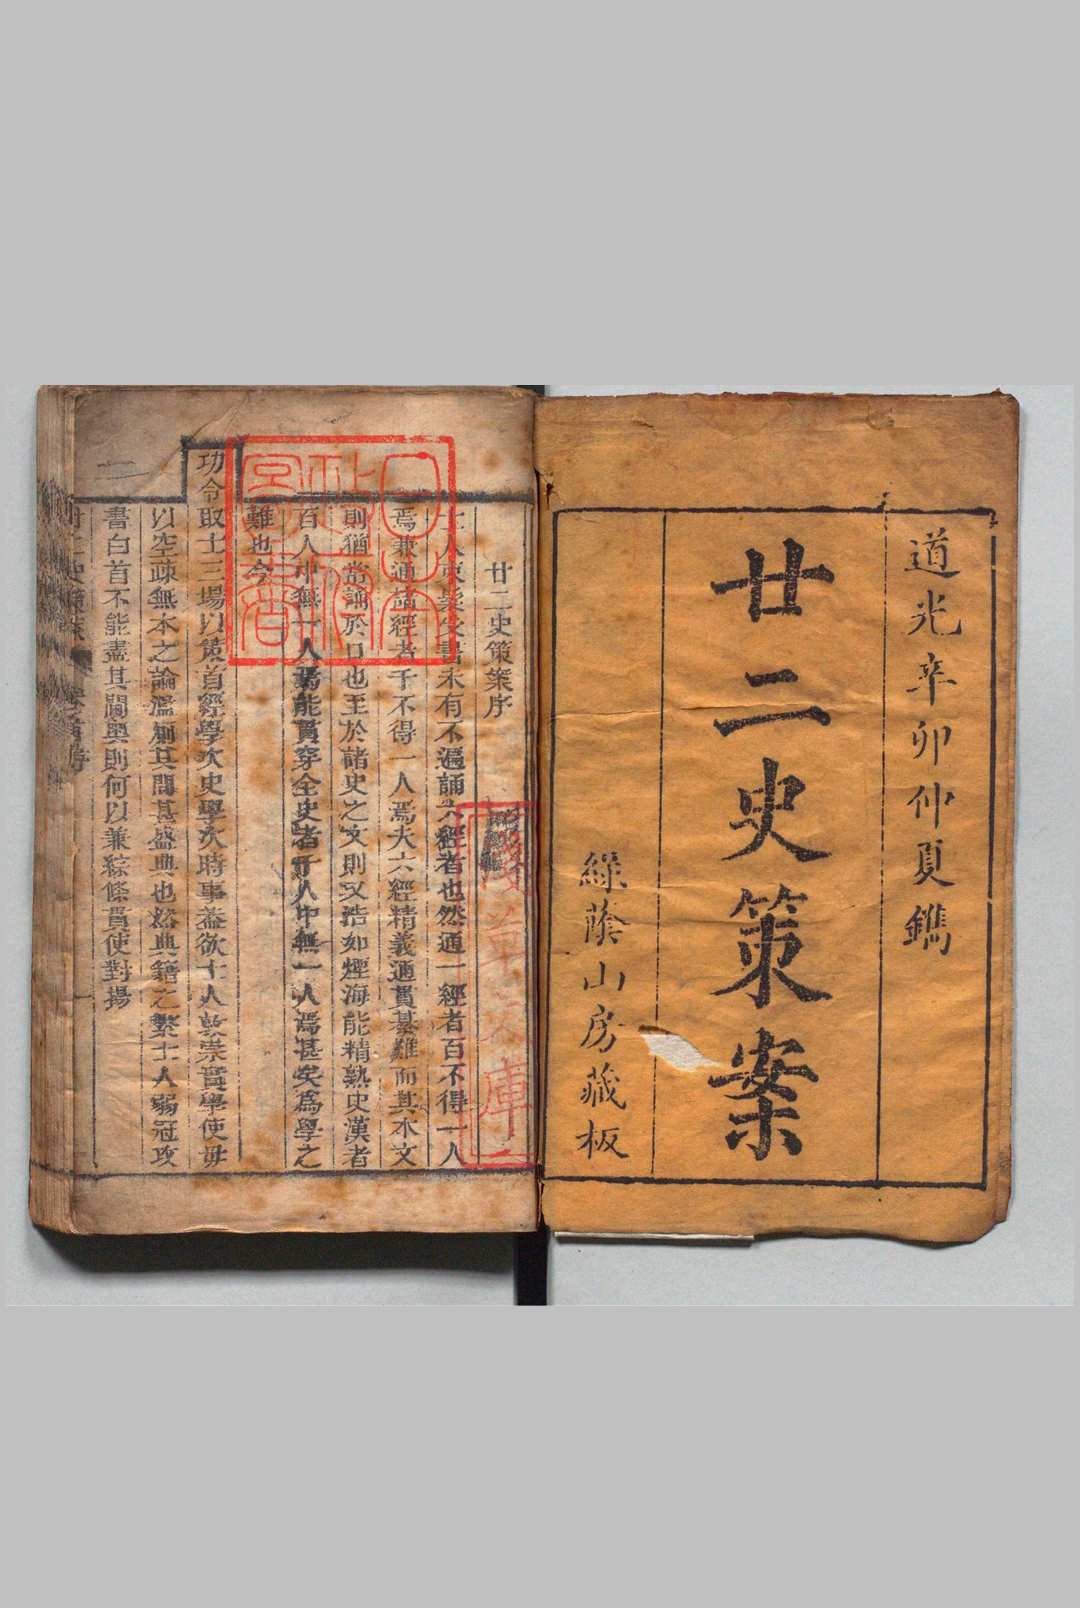 道光辛卯仲夏鐫
廿二史策案
綠蔭山房藏板
廿二史策案序
士人束髮受書未有不遍誦六經者也然通一經者百不得一人
焉兼通諸經者千不得一人焉夫六經精義通貫綦難而其本文
則猶常誦於口也至於諸史之文則又浩如煙海能精熟史漢者
百人中無一人焉能貫穿全史者千人中無一人焉甚矣為學之
難也今
功令取士三場以策首經學次史學次時事蓋欲士人敦崇實學使毋
以空疎無本之論濫廁其間甚盛典也然典籍之繁士人弱冠攻
書白首不能盡其閫奧則何以兼綜條貫使對揚